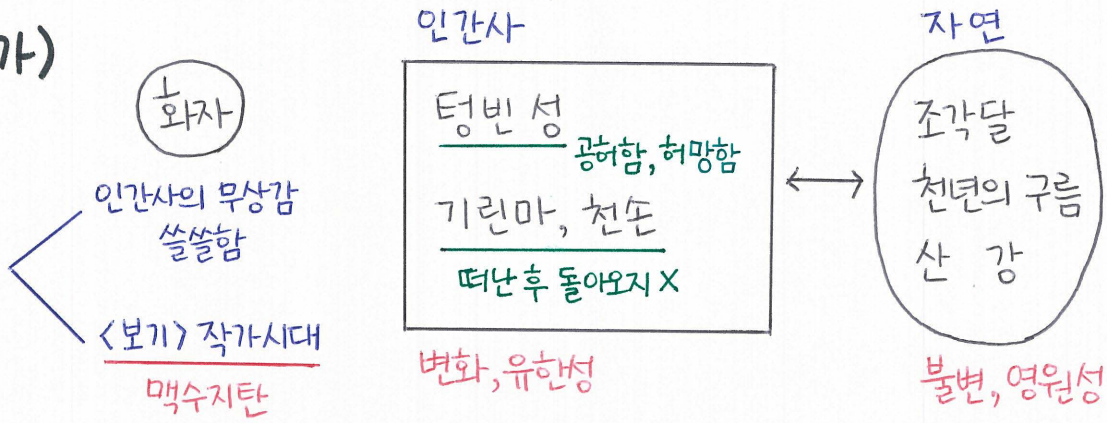 가)
화자
인간사의 무상감
쓸쓸함
<보기> 작가시대
맥수지탄
인간사
텅빈 성
공허함, 허망함
기린마, 천손
떠난 후 돌아오지 X
변화, 유한성
자연
조각달
천년의 구름
산 강
불변, 영원성